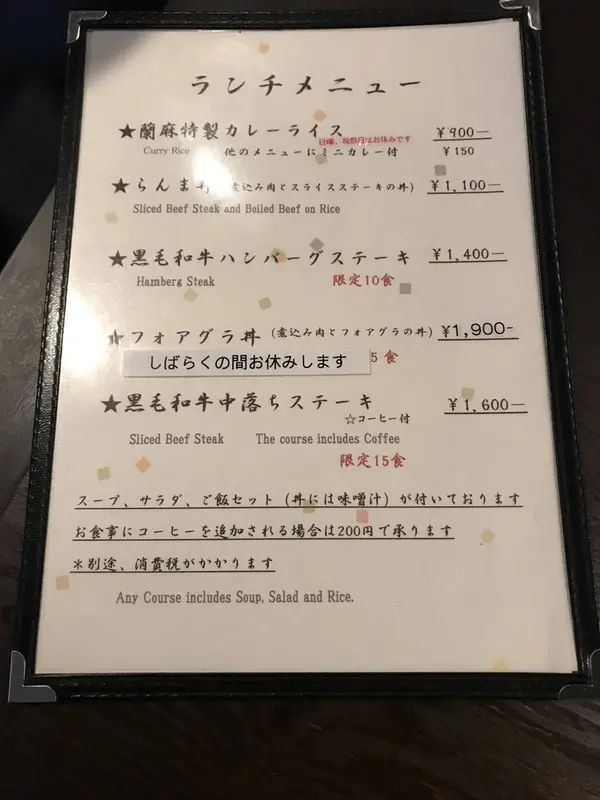 ランチメニュー
★蘭麻特製カレーライス ¥900―
日曜、祝祭日はお休みです
Curry Rice 他のメニューにミニカレー付 ¥150
★らんま丼(煮込み肉とスライスステーキの丼) ¥1,100―
Sliced Beef Steak and Boiled Beef on Rice
★黒毛和牛ハンバーグステーキ ¥1,400―
Hamberg Steak 限定10食
★フォアグラ丼(煮込み肉とフォアグラの丼) ¥1,900-
しばらくの間お休みします 5食
★黒毛和牛中落ちステーキ ¥1,600―
☆コーヒー付
Sliced Beef Steak The course includes Coffee
限定15食
スープ、サラダ、ご飯セット(丼には味噌汁)が付いております
お食事にコーヒーを追加される場合は200円で承ります
*別途、消費税がかかります
Any Course includes Soup, Salad and Rice.